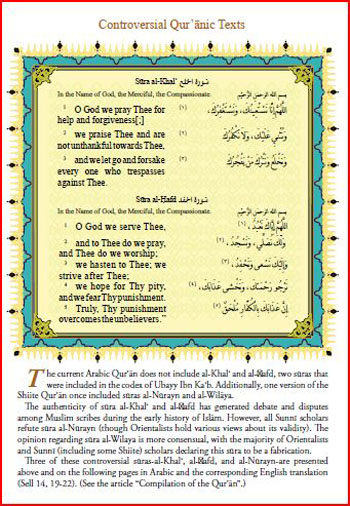 Controversial Qur'ānic Texts
Sūra al-Khal' سورة الخلع
In the Name of God, the Merciful, the Compassionate. بسم الله الرحمن الرحيم
1 O God we pray Thee for
help and forgiveness[;]
2 we praise Thee and are
not unthankful towards Thee,
3 and we let go and forsake
every one who trespasses
against Thee.
(١) اللَّهُمَّ إِنَّا نَسْتَعِينُكَ، وَنَسْتَغْفِرُكَ،
(٢) وَنُثْنِي عَلَيْكَ، وَلَا نَكْفُرُكَ
(٣) وَنَخْلَعُ وَنَتْرُكُ مَنْ يَفْجُرُكَ
Sūra al-Hafd سورة الحفد
In the Name of God, the Merciful, the Compassionate. بسم الله الرحمن الرحيم
1 O God we serve Thee,
2 and to Thee do we pray,
and Thee do we worship;
3 we hasten to Thee; we
strive after Thee;
4 we hope for Thy pity,
and we fear Thy punishment.
5 Truly, Thy punishment
overcomes the unbelievers.”
اللَّهُمَّ إِيَّاكَ نَعْبُدُ، (١)
وَلَكَ نُصَلِّي، وَنَسْجُدُ، (٢)
وَإِلَيْكَ نَسْعَى وَنَحْفِدُ، (٣)
نَرْجُو رَحْمَتَكَ، وَنَخْشَى عَذَابَكَ، (٤)
إِنَّ عَذَابَكَ بِالْكُفَّارِ مُلْحَقٌ (٥)
The current Arabic Qur'ān does not include al-Khal' and al-Hafd, two sūras that
were included in the codex of Ubayy Ibn Ka'b. Additionally, one version of the
Shiite Qur'ān once included sūras al-Nūrayn and al-Wilāya.
The authenticity of sūra al-Khal' and al-Hafd has generated debate and disputes
among Muslim scribes during the early history of Islām. However, all Sunnī scholars
refute sūra al-Nūrayn (though Orientalists hold various views about its validity). The
opinion regarding sūra al-Wilāya is more consensual, with the majority of Orientalists
and Sunnī (including some Shiite) scholars declaring this sūra to be a fabrication.
Three of these controversial sūras-al-Khal', al-Hafd, and al-Nūrayn-are presented
above and on the following pages in Arabic and the corresponding English translation
(Sell 14, 19-22). (See the article “Compilation of the Qur'ān”.)